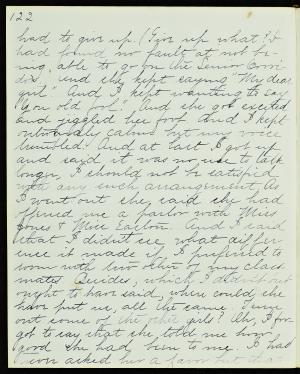 122
had to give up. Give up what? I
had found no fault at not be-
ing able to go on the Senior Corri-
dor, and she kept saying "My dear
girl". And I kept wanting to say
"You old fool". And she got excited
and jiggled her foot and I kept
calm but my voice
trembled. And at last I got up
and said it was no use to talk
longer, I should not be satisfied
with any such arrangement. As
I went out she said she had
offered me a parlor with Miss
Jones & Miss And I said
that I didn't see what differ-
ence it made if I preferred to
room with two other of my class
mates. Besides, which I didn't
ought to have said, where could she
have put us, all the same
out some of the other girls? Oh, I for-
got to say that she told me how
good she had been to me. I had
asked her a favor but that